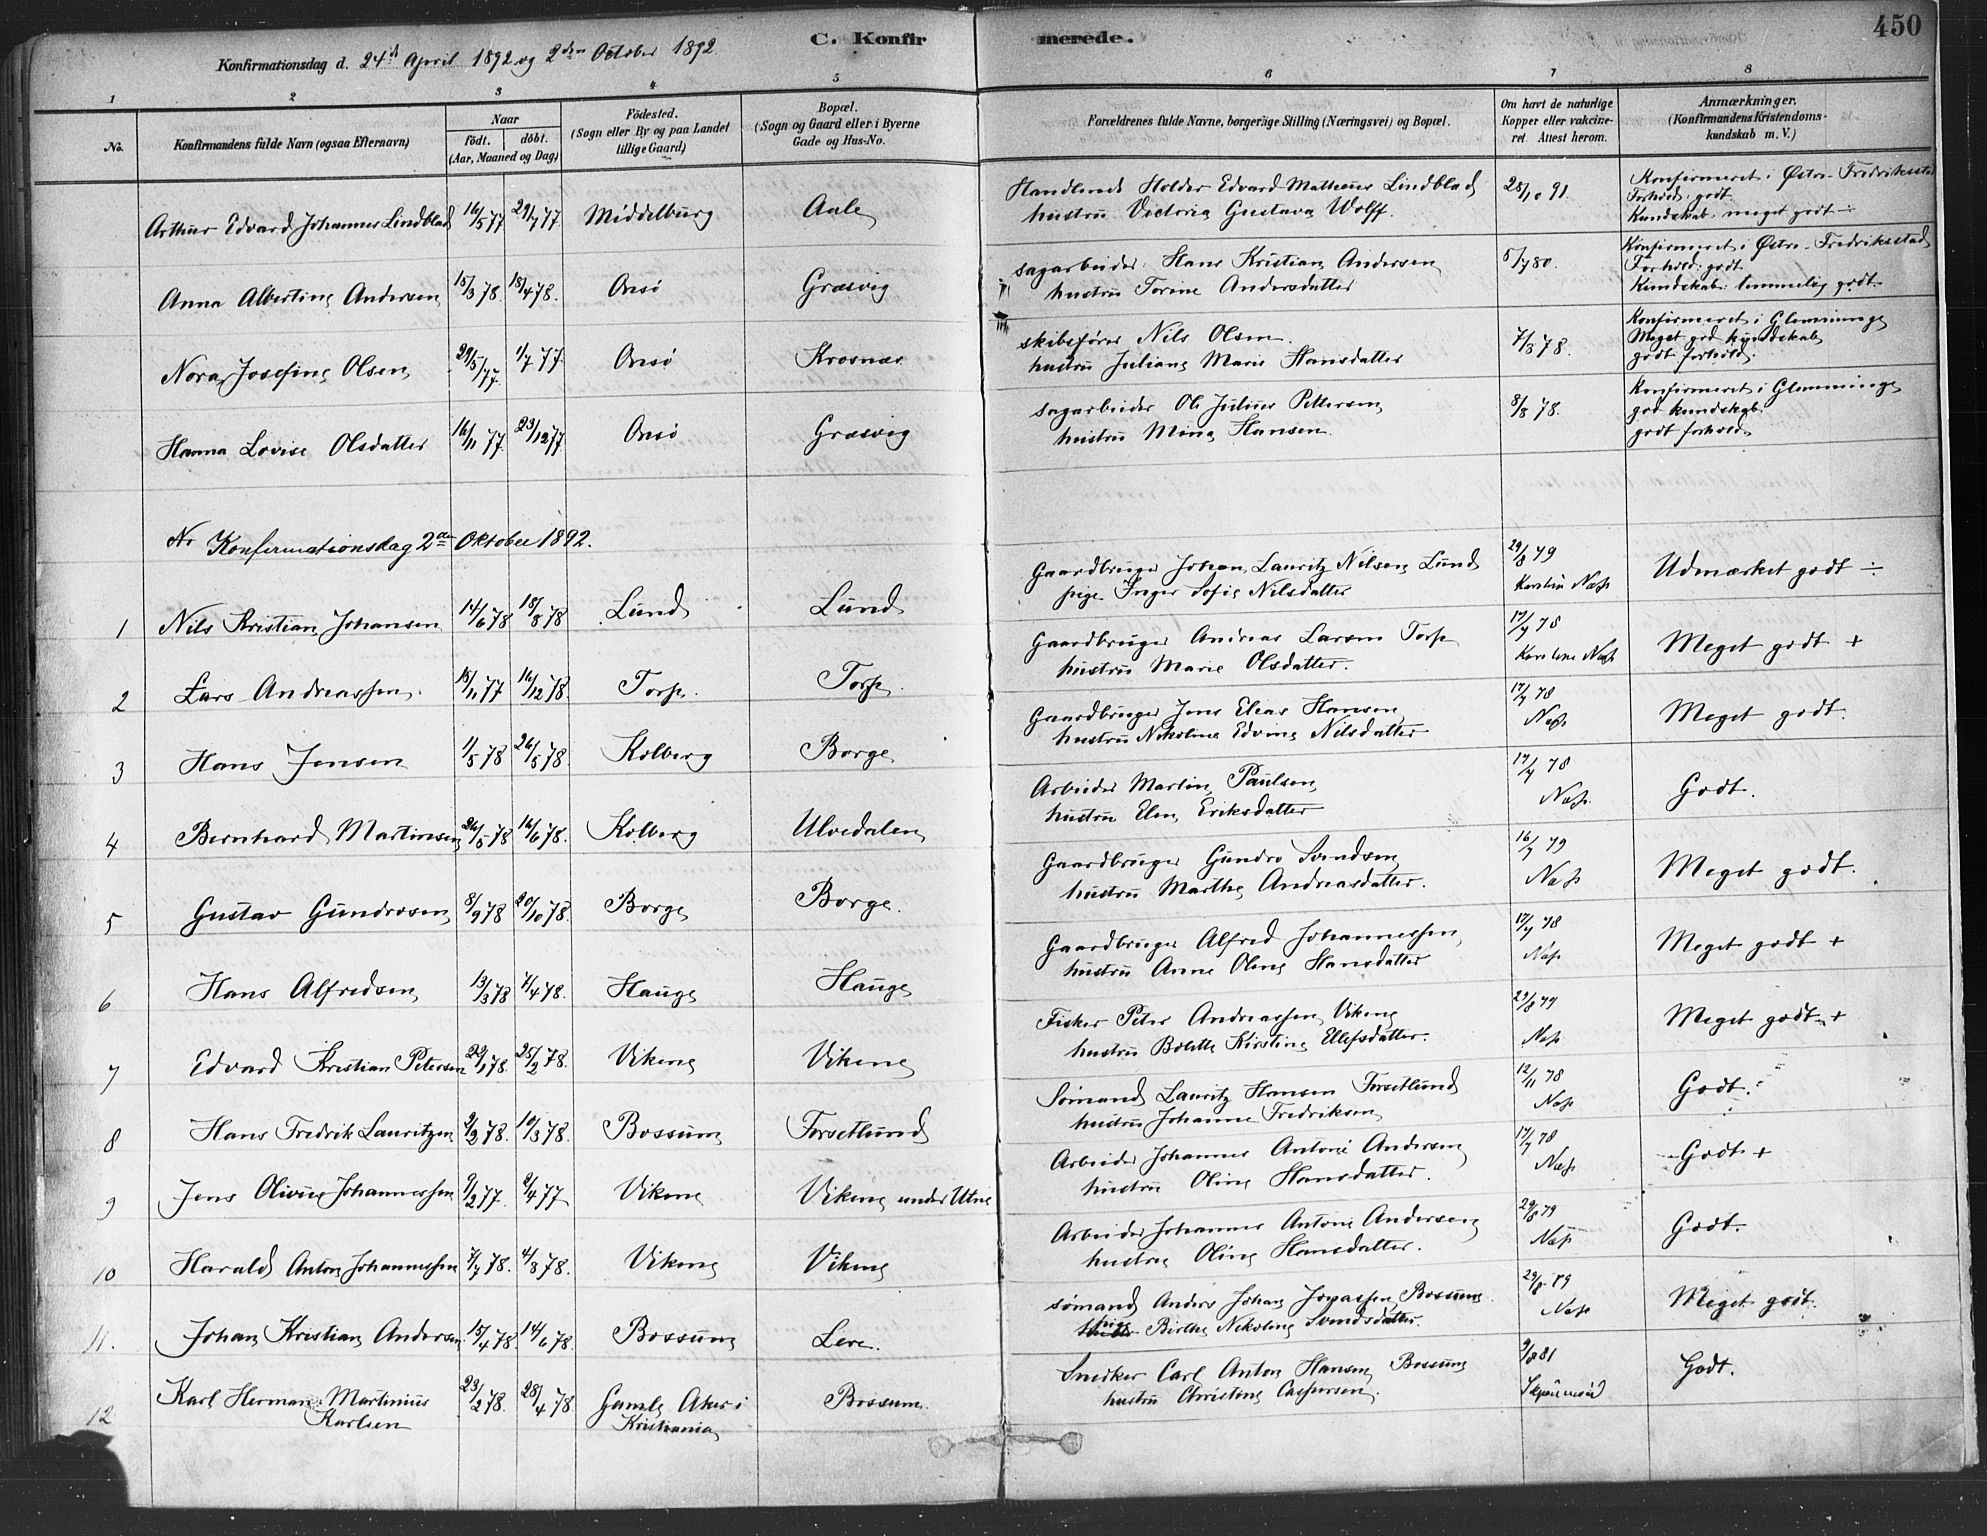 450
C. Konfirmerede.
Konfirmationsdag d. 24de April 1892 og 2den October 1892.
1 2 3 4 5 6 7 8
No.
Konfirmandens fulde Navn (ogsaa Efternavn)
Naar
født. døbt.
(Aar, Maaned og Dag)
Fødested.
(Sogn eller By og paa Landet
tillige Gaard)
Bopæl.
(Sogn og Gaard eller i Byerne
Gade og Hus-No.
Forældrenes fulde Navne, borgerlige Stilling (Næringsvei) og Bopæl.
Om havt de naturlige
Kopper eller vakcine-
ret. Attest herom.
Anmærkninger.
(Konfirmandens Kristendoms-
kundskab m. V.)
Arthur Edvard Johannes Lindblad 16/5 77 29/7 77 Middelburg Aale
Handlende Holder Edvard Matheus Lindblad 28/10 91.
hustru Victoria Gustava Wolff.
Konfirmeret i Østre Fredriksstad
Forhold: godt
Kundskab: meget godt ÷
Anna Albertine Andersen 15/3 78. 18/4 78. Onsø Græsvig
sagarbeider Hans Kristian Andersen 5/7 80.
hustru Torine Andersdatter
Konfirmeret i Østre Fredriksstad
Forhold: godt
Kundskab: temmelig godt
Nora Josefine Olsen 29/5 77. 1/7 77. Onsø Krosnæs
skibsfører Nils Olsen. 7/3 78.
hustru Juliane Marie Hansdatter
Konfirmeret i Glemminge
Meget god kundskab,
godt forhold.
Hanna Lovise Olsdatter 16/11 77. 23/12 77 Onsø Græsvig
sagarbeider Ole Julius Pettersen 8/8 78.
hustru Mina Hansen.
Konfirmeret i Glemminge
god kundskab.
godt forhold.
Nr Konfirmationsdag 2den Oktober 1892.
1 Nils Kristian Johansen 14/6 78 18/8 78 Lund Lund
Gaardbruger Johan Lauritz Nilsen Lund 29/8 79
pige Inger Sofie Nilsdatter Næss
Udmærket godt ÷
2 Lars Andreassen. 15/11 77 16/12 78. Torp. Torp.
Gaardbruger Andreas Larsen Torp 17/7 78
hustru Marie Olsdatter. Næss
Meget godt +
3 Hans Jensen 1/5 78 26/5 78. Kolberg Borge
Gaardbruger Jens Elias Hansen 17/7 78
hustru Nikoline Edvine Nilsdatter Næss
Meget godt.
4 Bernhard Martinsen 26/5 78 16/6 78. Kolberg Ulvedalen
Arbeider Martin Paulsen 17/7 78
hustru Elen Eriksdatter Næss.
Godt.
5 Gustav Gundrosen 8/9 78 20/10 78. Borge Borge.
Gaardbruger Gundro Svendsen 16/7 79
hustru Marthe Andreasdatter. Næss
Meget godt.
6 Hans Alfredsen 13/3 78 7/4 78. Hauge Hauge
Gaardbruger Alfred Johannessen 17/7 78
hustru Anne Oline Hansdatter Næss
Meget godt +
7 Edvard Kristian Petersen 22/1 78. 25/2 78. Vikene Vikene
Fisker Peter Andreassen Vikene
hustru Bolette Kirstine Ellefsdatter. Næss
Meget godt +
8 Hans Fredrik Lauritzen 2/2 78. 10/3 78. Bossum Torsetlund
Sømand Lauritz Hansen Torsetlund 12/11 78
hustru Johanne Fredriksen Næss
Godt.
9 Jens Olivius Johannessen 9/2 77. 2/4 77 Vikene Vikene under Utne
Arbeider Johannes Antoni Andersen 17/7 78
hustru Oline Hansdatter. Næss
Godt +
10 Harald Anton Johannessen 7/7 78. 4/8 78. Vikene Vikene
Arbeider Johannes Antoni Andersen 29/8 79
hustru Oline Hansdatter. Næss
Godt.
11. Johan Kristian Andersen 15/4 78. 14/6 78. Bossum Lere.
sømand Anders Johan Jonassen Bossum
pige Birthe Nikoline Svendsdatter. Næss
Meget godt.
12 Karl Herman Martinius 23/2 78. 28/4 78. Gamle Aker i Bossum.
Karlsen Kristiania
Snedker Carl Anton Hansen Bossum 9/8 81
hustru Christine Caspersen.
Godt.